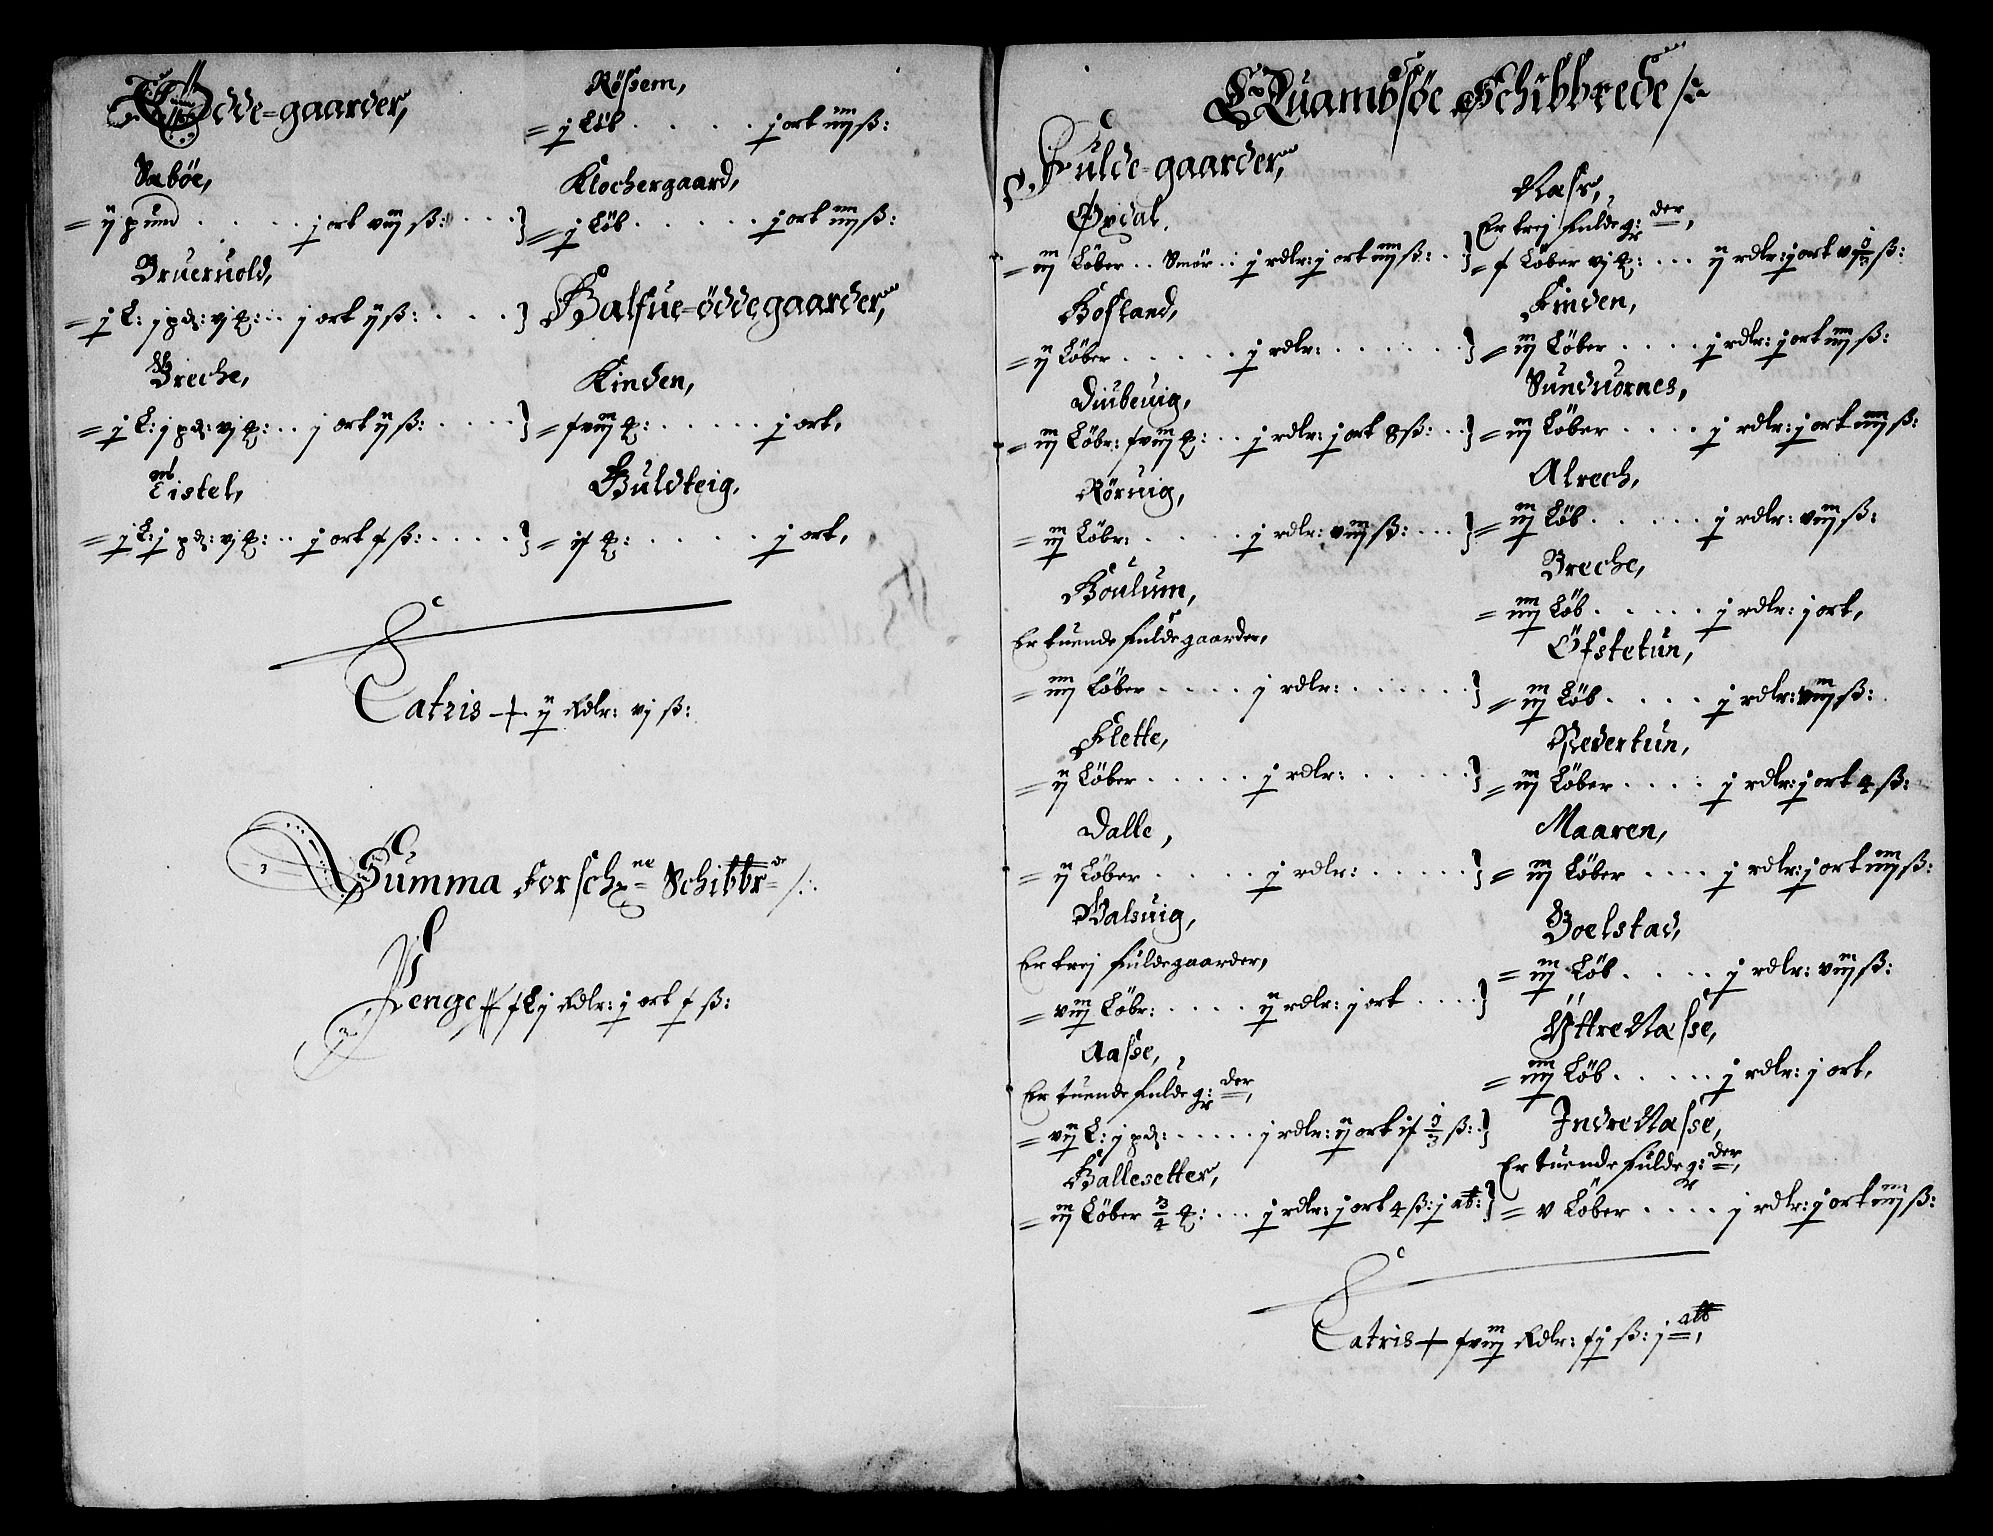 Ödde-gaarder,
Saböe,
= ij pund . . . . . j ort viij ß: . . . }
Brueruold,
= j L: j pd: vj ꝶ: . . j ort ij ß: . . . . }
Breche,
= j L: j pd: vj ꝶ: . . j ort ij ß: . . . . }
Tistel,
= j L: j pd: vj ꝶ: . . j ort x ß: . . . . }
Rössem,
= j Löb . . . . . j ort iiij ß:
Klochergaard,
= j Löb . . . . . j ort iiij ß:
Halfue-öddegaarder,
Kinden,
= xviij ꝶ: . . . . . . j ort,
Huldteig,
= ix ꝶ: . . . . . j ort,
Latris + ij Rdlr: vj ß:
Summa forschne Schibbrde /:
Penge xLj Rdlr: j ort x ß:
Quamsöe Schibbrede /:
Fulde-gaarder,
Öxdal,
= iij Löber . . Smör . : j rdlr: j ort iiij ß: . . }
Hofland,
= ij Löber . . . . . j rdlr: . . . . . . }
Diubeuig,
= iij Löbr: xviij ꝶ: . . j rdlr: j ort 8 ß: . . }
Röruig,
= iij Löbr: . . . . . j rdlr: viij ß: . . . }
Houlum,
Er tuende fulde gaarder,
= iiij Löber . . . . j rdlr: . . . . . . }
Flette,
= ij Löber . . . . . j rdlr: . . . . . . }
Dalle,
= ij Löber . . . . . j rdlr: . . . . . }
Balsuig,
Er trej fuldegaarder,
= viij Löbr: . . . . ij rdlr: j ort . . . . }
Aasse,
Er tuende fulde g:der,
= vij L: j pd: . . . . . j rdlr: ij ort ix 1/3 ß: . }
Hallesetter,
= iij Löber 3/4 ꝶ: . . . j rdlr: j ort 4 ß: j alb: }
Nass,
Er trej fulde g:der,
= x Löber vj ꝶ: . . . ij rdlr: j ort vj 1/3 ß:
Finden,
= iij Löber . . . . j rdlr: j ort iiij ß:
Sunduornes,
= iij Löber . . . . j rdlr: j ort iiij ß:
Alrech,
= iij Löb . . . . . j rdlr: viij ß:
Breche,
= iiij Löb . . . . . j rdlr: j ort,
Öfstetun,
= iij Löb . . . . j rdlr: viij ß:
Nedertun,
= iij Löber . . . . j rdlr: j ort 4 ß:
Maaren,
= iij Löber . . . . j rdlr: j ort iiij ß:
Boelstad,
= iij Löb . . . . j rdlr: viij ß:
Yttre Nasse,
= iiij Löb . . . . . j rdlr: j ort,
Indre Nasse,
Er tuende fulde g:der,
= v Löber . . . . j rdlr: j ort iiij ß:
Latris + xviij Rdlr: xj ß: j alb,